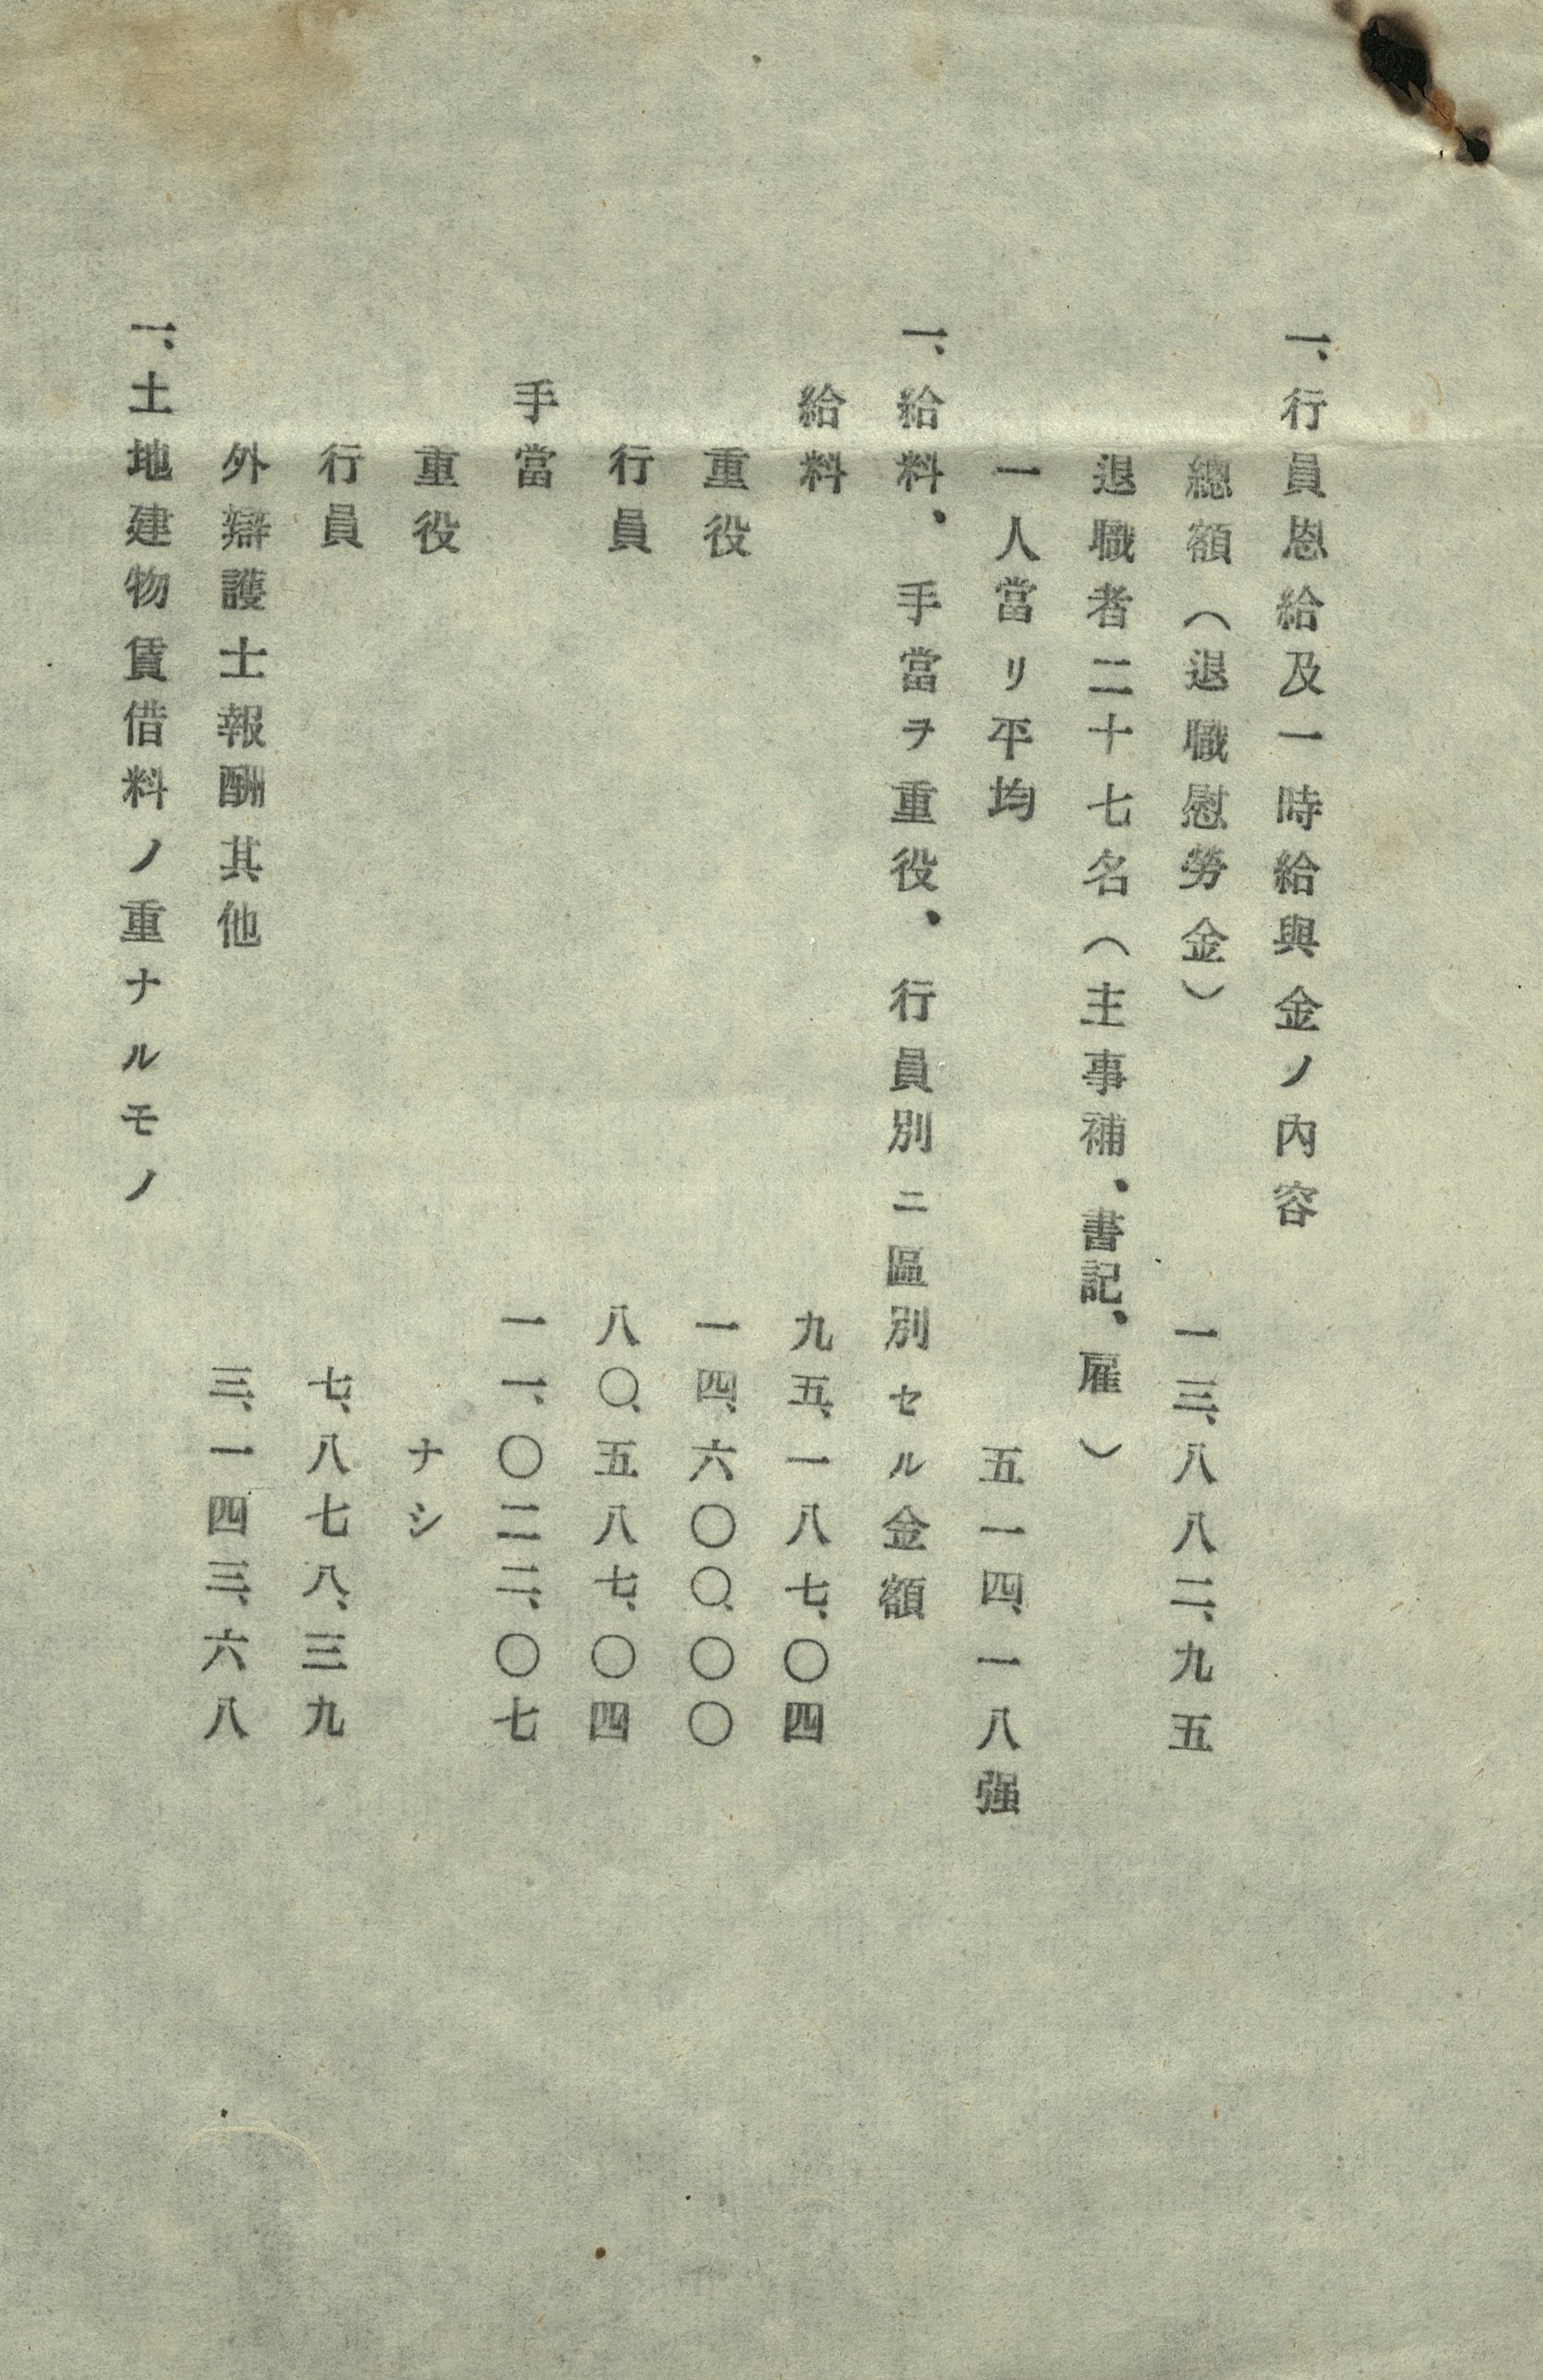 一、行員恩給及一時給與金ノ內容
總額（退職慰勞金）　一三、八八二、九五
退職者二十七名（主事補、書記、雇）
一人當リ平均　五一四、一八强
一、給料、手當ヲ重役、行員別ニ區別セル金額
給料　九五、一八七、〇四
重役　一四、六〇〇、〇〇
行員　八〇、五八七、〇四
手當　一一、〇二二、〇七
重役　ナシ
行員　七、八七八、三九
外辯護士報酬其他　三、一四三、六八
一、土地建物賃借料ノ重ナルモノ